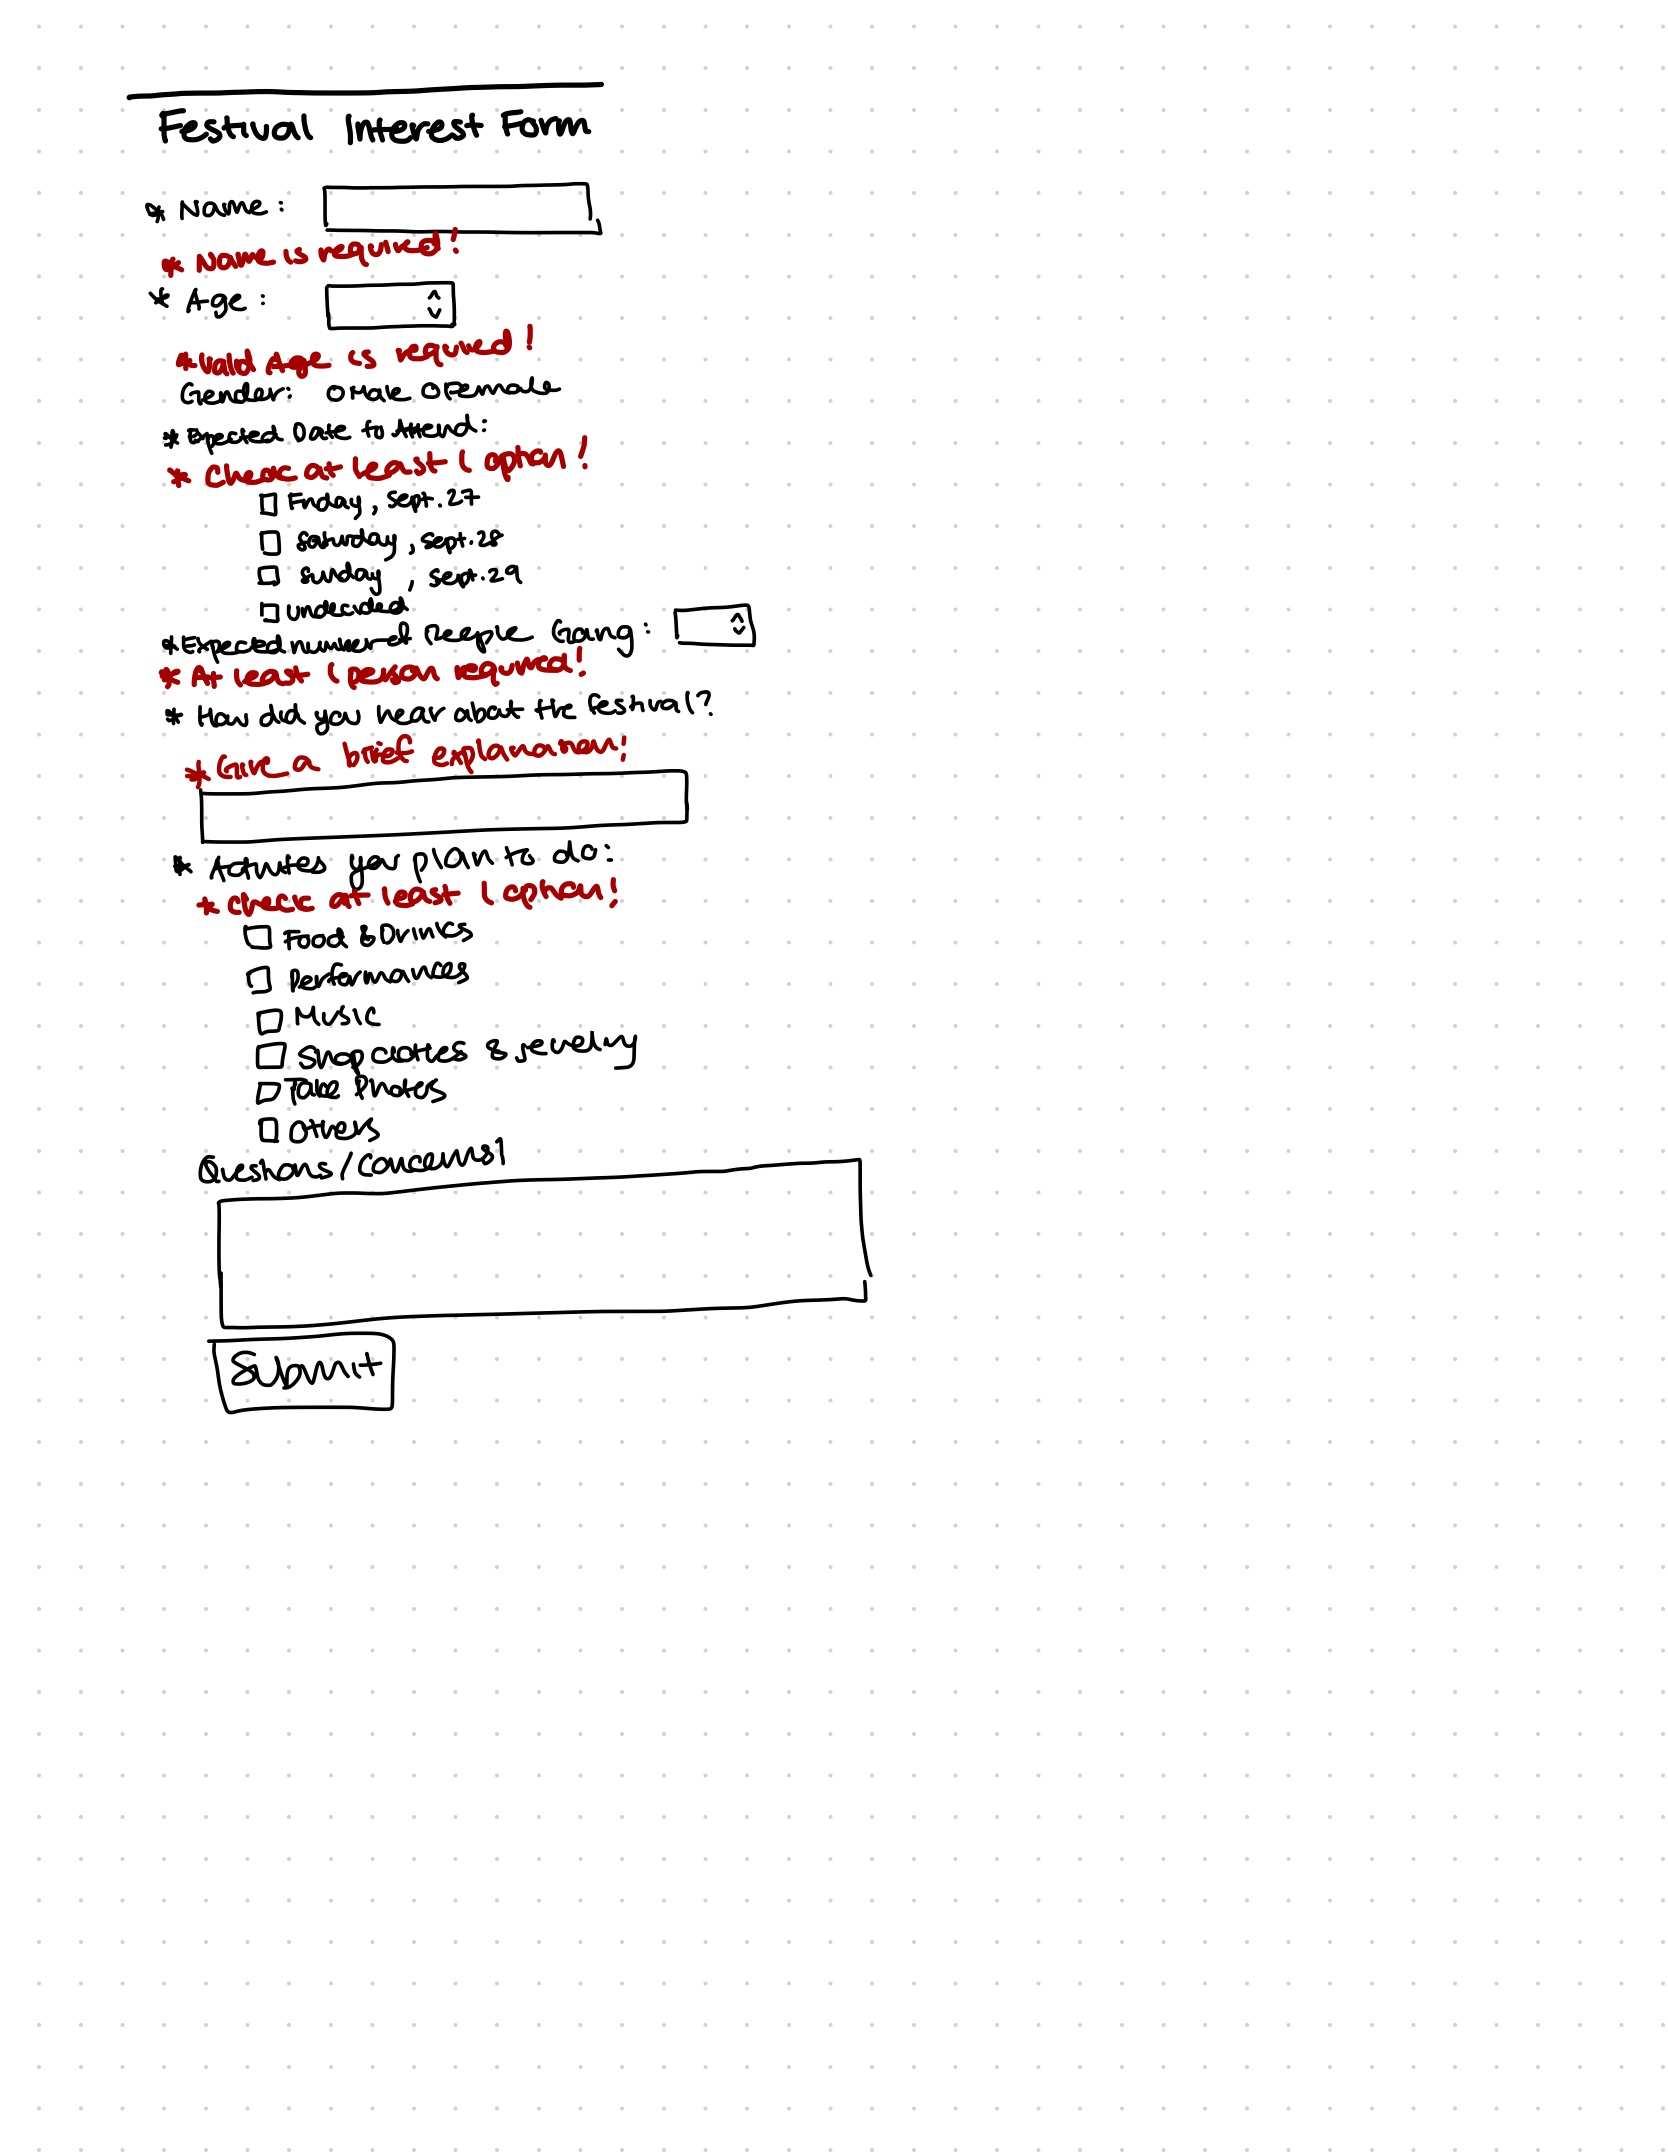 Festival Interest Form
* Name:
* Name is required!
* Age:
* Valid Age is required!
Gender: Male Female
* Expected Date to Attend:
* Check at least 1 option!
Friday, Sept. 27
Saturday, Sept. 28
Sunday, Sept. 29
undecided
* Expected number of People Going:
* At least 1 person required!
* How did you hear about the festival?
* Give a brief explanation!
* Activites you plan to do:
* Check at least 1 option!
Food & Drinks
Performances
Music
Shop clothes & jewelry
Take Photos
Others
Questions/Concerns?
Submit